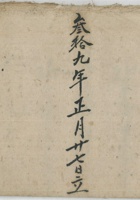 叁拾九年正月廿七日立